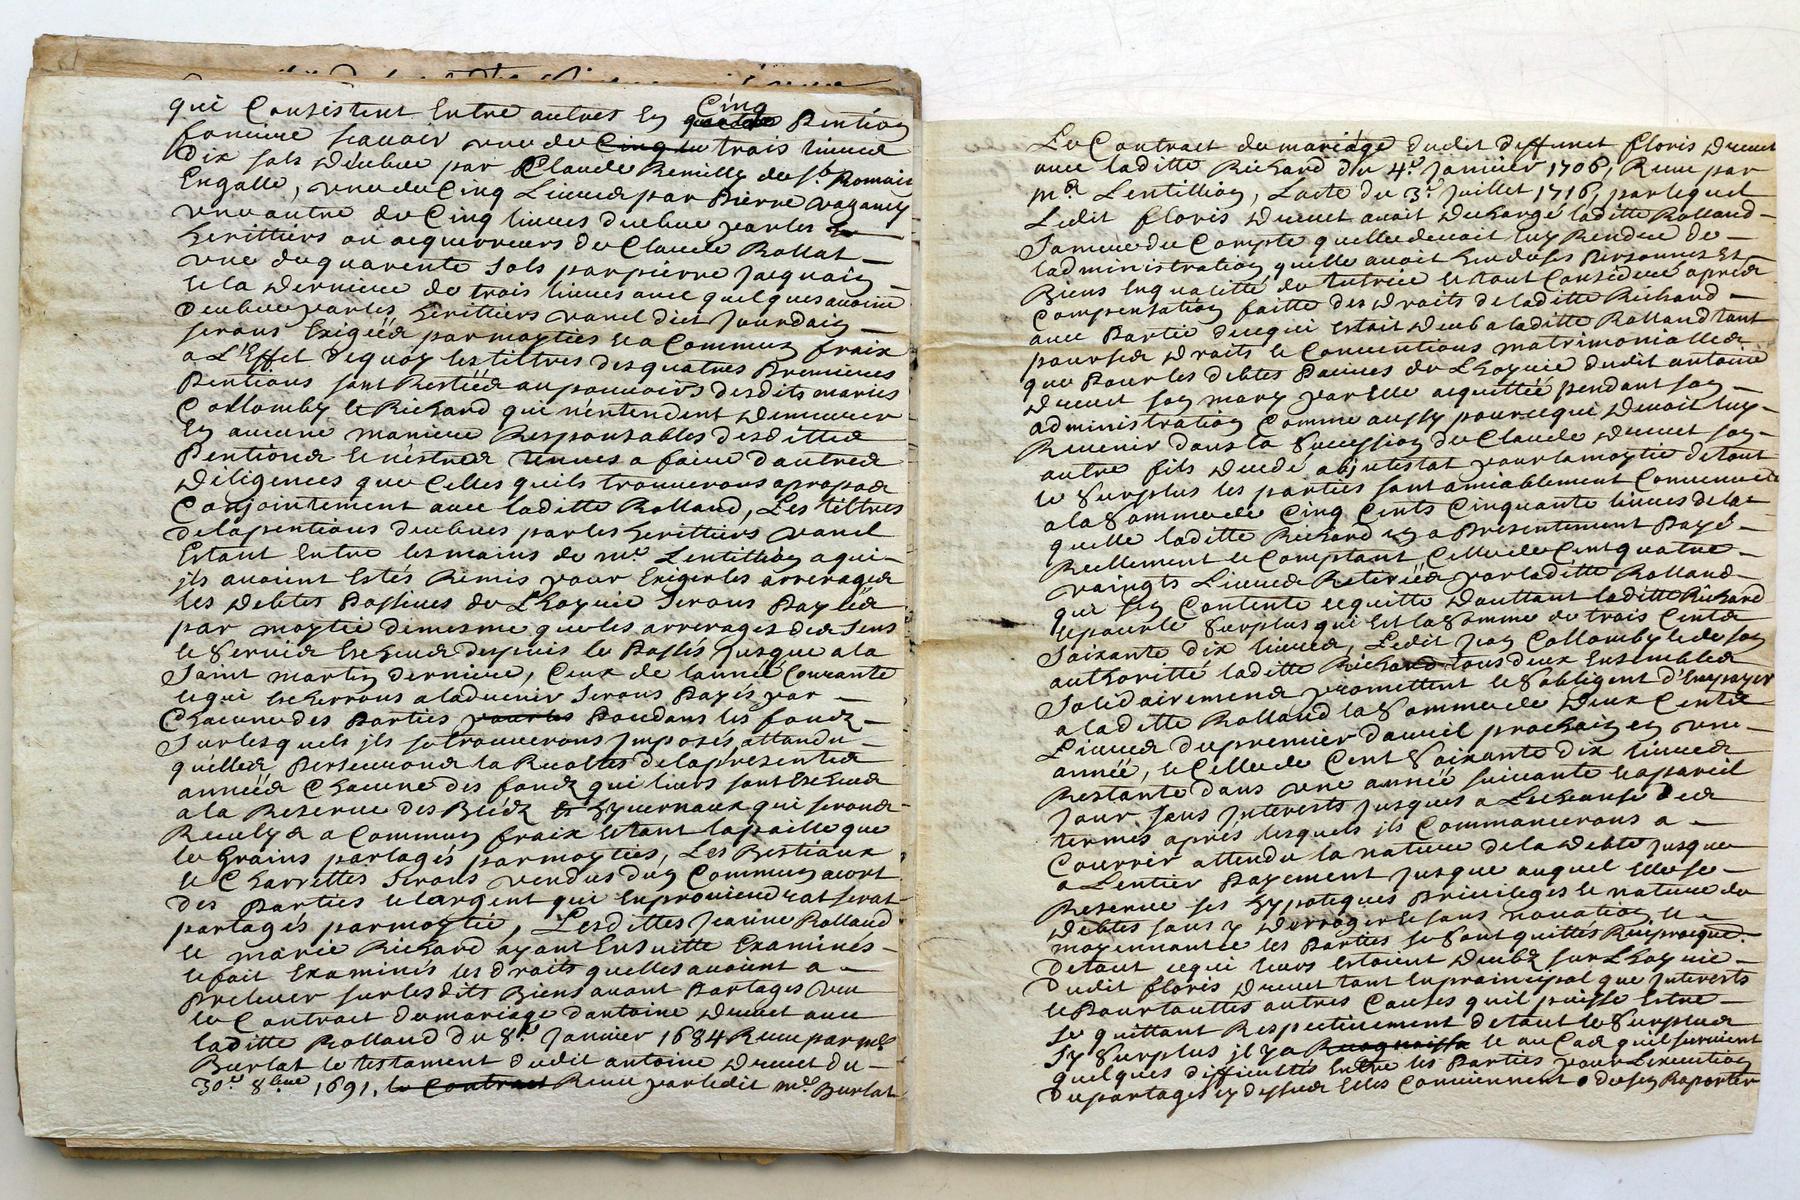 qui Consistent Entre autres En Cinq quatre Pention
fonciere scauoir vne de Cinq du trois liures
dix sols Deübue par Claude Remilly de St. Romain
Engalle, vne de Cinq Liures par Pierre
vne autre de Cinq liures deubue par les
heritiers ou acquerreurs de Claude Rollat
vne de quarente sols par pierre Jacquain
et la Derniere de trois liures auec quelques auoine
Deubue par les heritiers vanel dict Jourdain
serons Exigées par moytiés et a Commun fraix
a L'Effet dequoy les tiltres des quatres Premieres
Pentions sont Restées au pouuoirs desdits mariés
Collomby et Richard qui n'entendent demeurer
En aucune maniere Responsables desdittes
Pentions et nestres tenues a faire dautres
Diligences que Celles quils trouuerons apropos
Conjointement auec laditte Rolland, Les tiltres
de la pentions deubues par les heritiers vanel
Estant Entre les mains de me. Lentillion a qui
jls auoient Estés Remis pour Exiger les arrerages
les Debtes Passiues de L'hoyrie Serons Payées
par moytié demesme que les arrerages des Sens
et Seruis Escheus despuis le Passés jusque a la
Saint martin derniere, Ceux de lannée Courante
et qui escherrons a laduenir Serons Payés par
Chacune des Parties pour les Pendans les fondz
Sur lesquels jls se trouuerons jmposés, attandu
quelles Perseurons la Recoltes de la presentes
années Chacune des fondz qui leurs sont Escheus
a la Reserue des Bledz et hyuernaux qui serons
Reculys a Commun fraix et tant la paille que
le Grains partagés par moyties, Les Bestiaux
et Charrettes Serons vendus dun Commun acort
des Parties et largent qui En prouiendrat serat
partagés par moytié, Lesdittes Jeanne Rolland
et marie Richard ayant Ensuitte Examinés
et fait Examinés les droits quelles auoient a
Preleuer sur lesdits Biens auant Partages veu
le Contract de mariage dantoine Dreuet auec
laditte Rolland du 8e. Januier 1684 Receu par me.
Burlat le testament dudit antoine Dreuet du
30e. 8bre 1691, le Contract Receu par ledit me. Burlat
Le Contract de mariage dudit deffunct floris Dreuet
auec laditte Richard du 4e. Januier 1706, Receu par
me. Lentillion, Lacte du 3e. Juillet 1716, par lequel
Ledit floris Dreuet auoit Decharge laditte Rolland
Sa mere du Compte quelle deuoit luy Rendre de
ladministration quelle auoit Eue de ses Personnes Et
Biens En qualitté de tutrice le tout Consideré aprés
Compensation faitte des Droits de laditte Richard
auec Partie de ce qui Estoit Deub a laditte Rolland tant
pour ses Droits et Conuentions matrimonialles
que Pour les debtes Passiues de L'hoyrie dudit antoine
Dreuet son mary par Elle acquittée pendant son
administration Comme aussy pour ce qui Deuoit luy
Reuenir dans la Succession de Claude Dreuet son
autre fils Decedé abjntestat pour la moytié de tout
le Surplus les parties sont amiablement Conuenues
a la Somme de Cinq Cents Cinquante liures de la
quelle laditte Richard En a Présentement Payé
Reellement et Comptant Celle de Cent quatre
vaingts Liures Retirées par laditte Rolland
qui sen Contente et quitte Dauttant laditte Richard
et pour le Surplus qui Est la Somme de trois Cents
Soixante dix liures, Ledit Jean Collomby et de son
authoritté laditte Richard tous deux Ensembles
Solidairement promettent et Sobligent d'En payer
a laditte Rolland la Somme de Deux Cents
Liures du premier dauril prochain en vne
année, et Celle de Cent Soixante dix liures
Restante dans vne année suiuante et apareil
Jour sans Interests jusques a Lecheanse des
termes aprés lesquels jls Commancerons a
Courrir attendu la nature de la Debte jusque
a Lentier Payement jusque auquel Elle se
Reserue ses hypoteques Priuileges et nature de
Debtes sans y Derroger et sans nouation et
moyennant ce les Parties se Sont quittes Reciproque.
De tout ce qui leurs Estoient Deubz sur L'hoyrie
Dudit floris Dreuet tant En principal que Jnterests
et Pour touttes autres Causes quil puisse Estre
se quittant Respectiuement de tout le Surplus
Sy Surplus jl y a et au Cas quil suruient
quelques difficultés Entre les Parties pour Lexecution
Du partages cy dessus Elles Conuiennent de sen Raporter